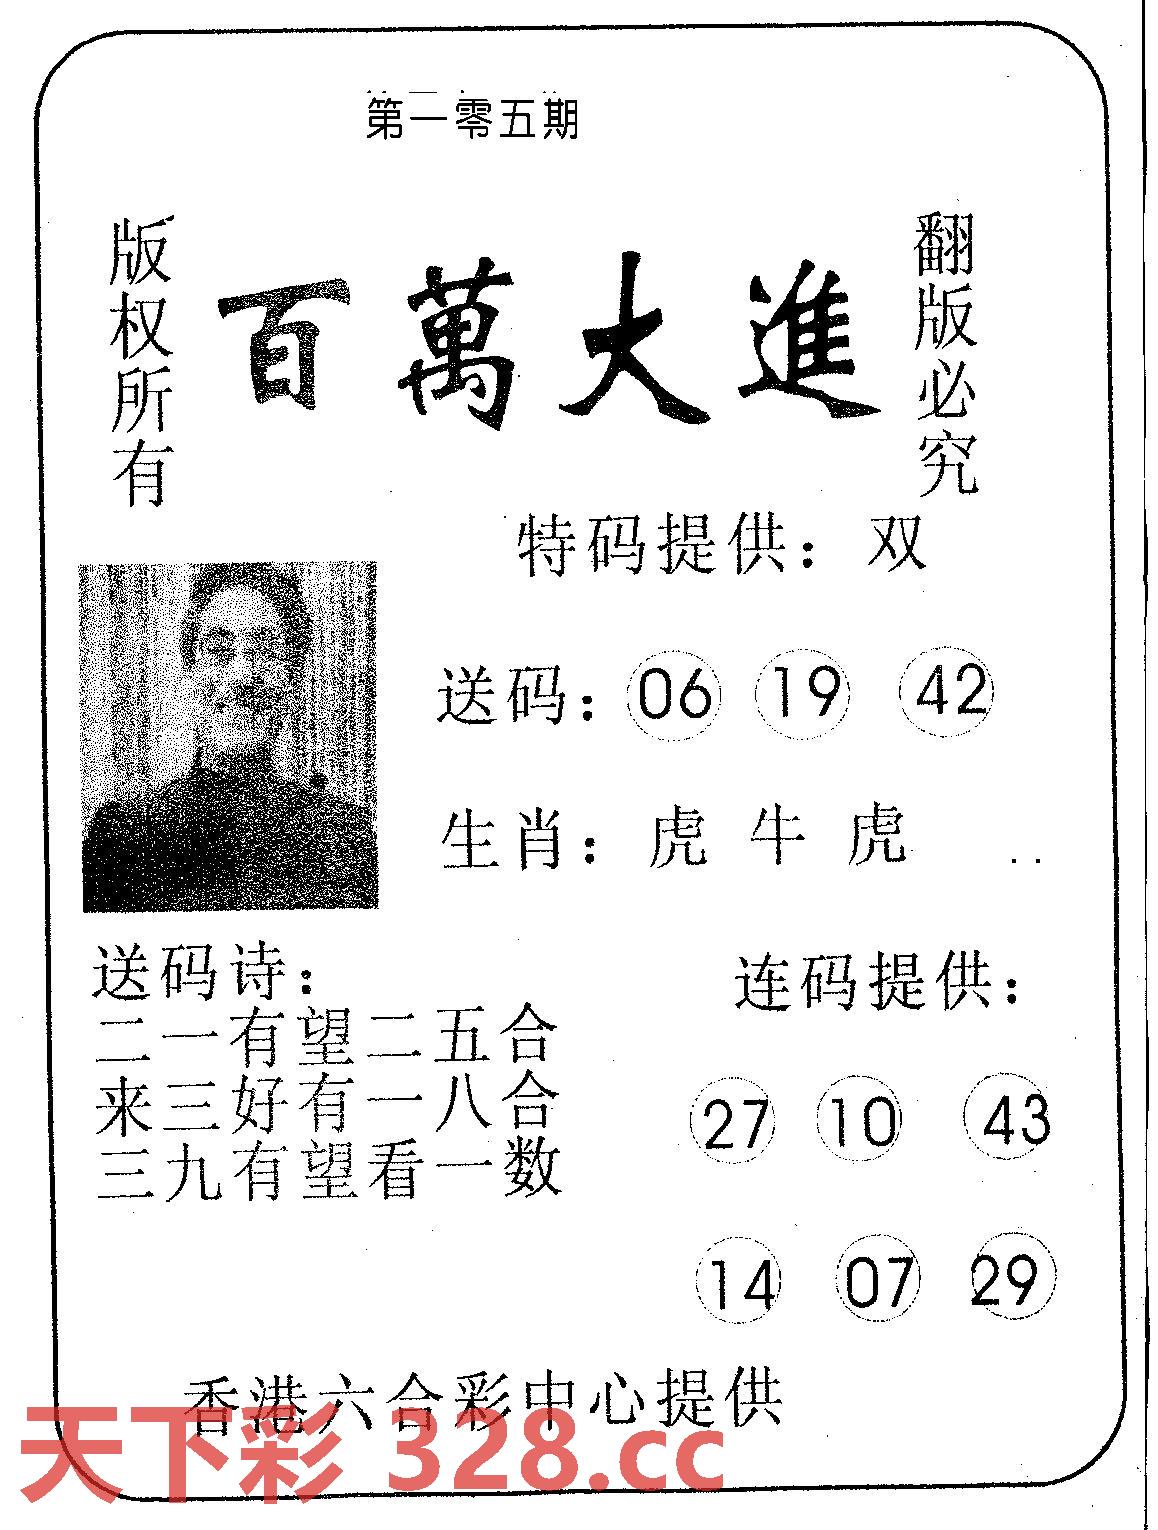 第一零五期
版权所有
百萬大進
翻版必究
特码提供：双
送码：06 19 42
生肖：虎 牛 虎
送码诗：
二一有望二五合
来三好有一八合
三九有望看一数
连码提供：
27 10 43
14 07 29
香港六合彩中心提供
天下彩 328.cc